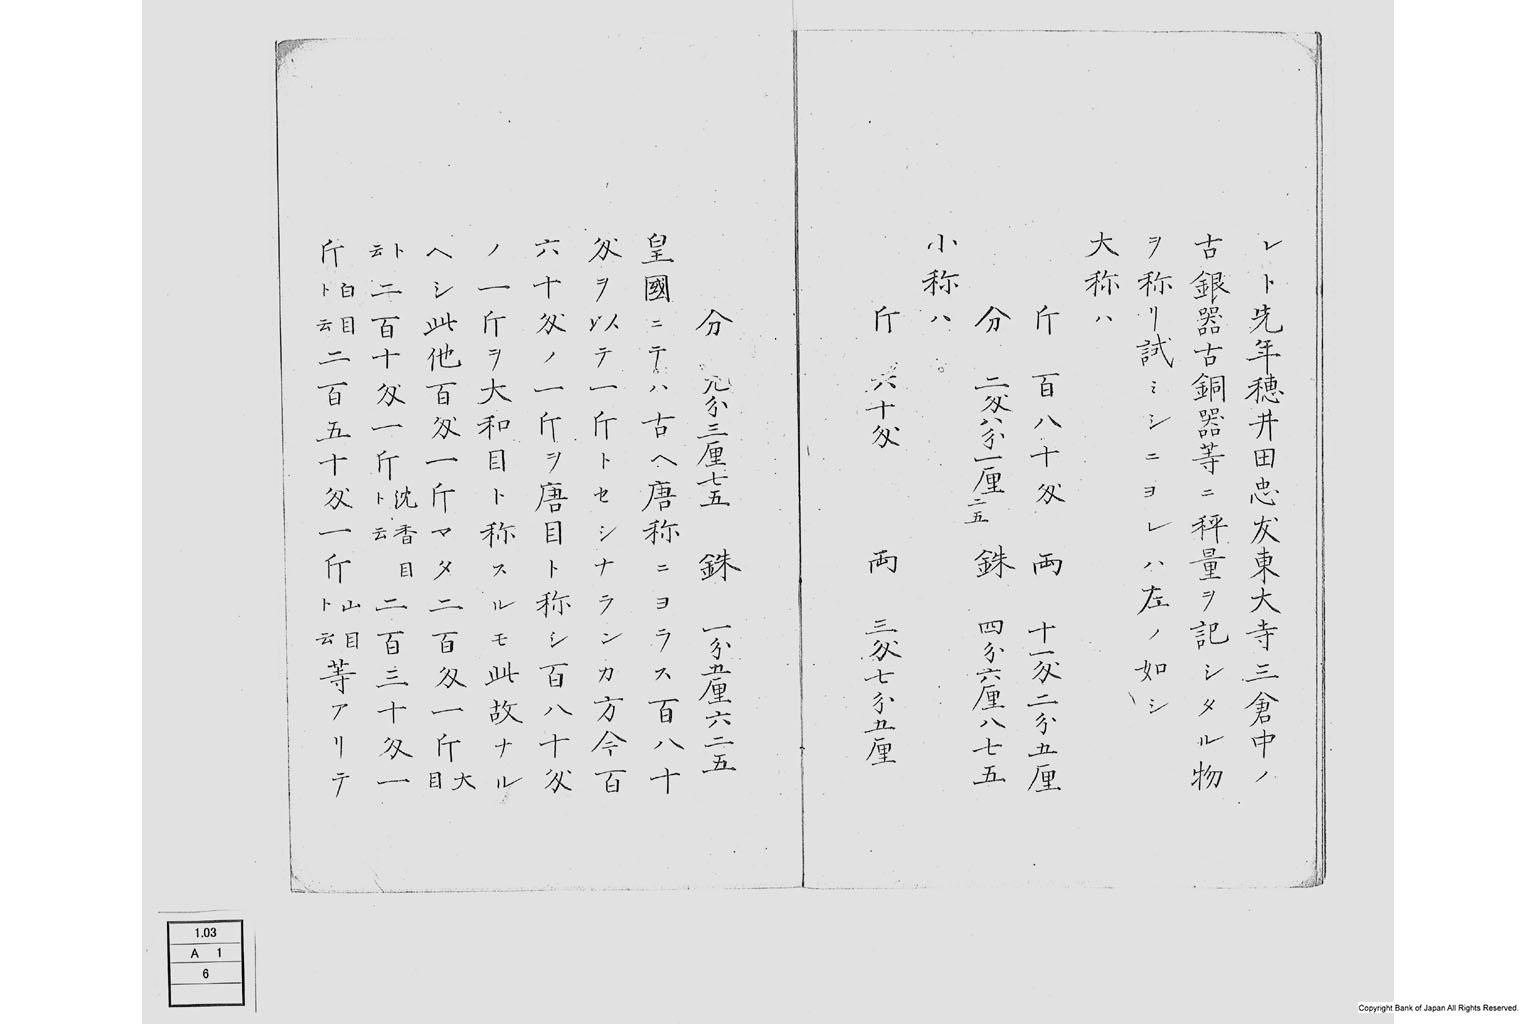 レト先年穂井田忠友東大寺三倉中ノ
古銀器古銅器等ニ秤量ヲ記シタル物
ヲ称リ試ミシニヨレハ左ノ如シ
大称ハ
斤 百八十匁 両 十一匁二分五厘
分 二匁八分一厘二五 銖 四分六厘八七五
小称ハ
斤 六十匁 両 三匁七分五厘
分 九分三厘七五 銖 一分五厘六二五
皇國ニテハ古ヘ唐称ニヨラス百八十
匁ヲ以テ一斤トセシナランカ方今百
六十匁ノ一斤ヲ唐目ト称シ百八十匁
ノ一斤ヲ大和目ト称スルモ此故ナル
ヘシ此他百匁一斤マタ二百匁一斤大目
ト云二百十匁一斤沈香目ト云二百三十匁一
斤白目ト云二百五十匁一斤山目ト云等アリテ
1.03
A 1
6
Copyright Bank of Japan All Rights Reserved.